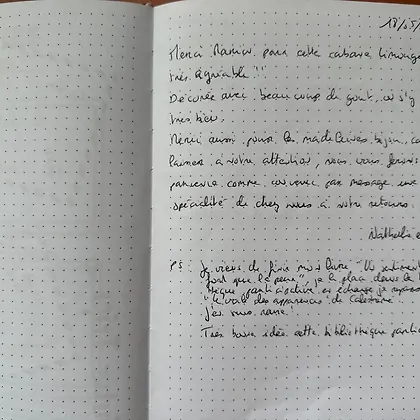 18/05/
Merci Marion pour cette cabane limouge
très agréable !!
Décorée avec beaucoup de goût, on s'y
très bien.
Merci aussi pour les madeleines bijou, ca
laissées à votre attention, nous vous ferons
parvenir comme convenu par message une
spécialité de chez nous à votre retour.
Nathalie e
PS : Je viens de finir mon livre "Un sentiment
plus que la peur", je la place dans la
thèque participative en échange je repars
"le bal des apparences" de
j'ai vous, rare.
Très bonne idée cette bibliothèque partici